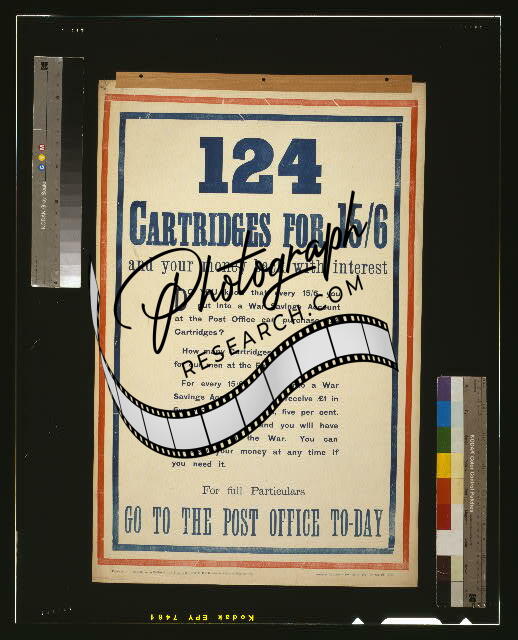 124
CARTRIDGES FOR 15/6
and your money back with interest
know that every 15/6 you
put into a War Savings Account
at the Post Office can purchase
Cartridges?
How many Cartridges
for our men at the
For every 15/6 a War
Savings receive £1 in
five per cent.
and you will have
the War. You can
your money at any time if
you need it.
For full Particulars
GO TO THE POST OFFICE TO-DAY
Photograph
RESEARCH.COM
KODAK Gray Scale
KODAK Color Control Patches
Kodak EPY 7461